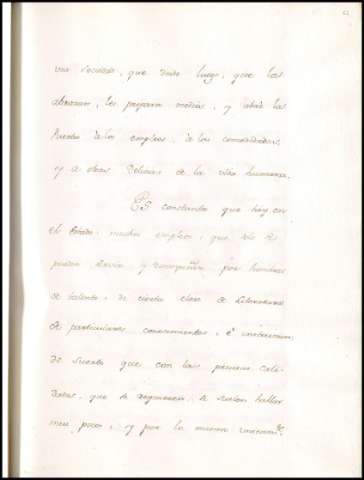 que desde luego, que las
abrazan, les prepara medios, y abre las
Puertas de los empleos, de las comodidades,
y a otras Delicias de la vida humana.
Es constante que hay en
el Estado muchos empleos, que no se
pueden servir, y desempeñar por hombres
de talento, de cierta clase de Literatura
de particulares conocimientos, è instruccion:
De suerte que con las primeras cali-
dades, que se requieren, se suelen hallar
muy pocos, y por lo mismo